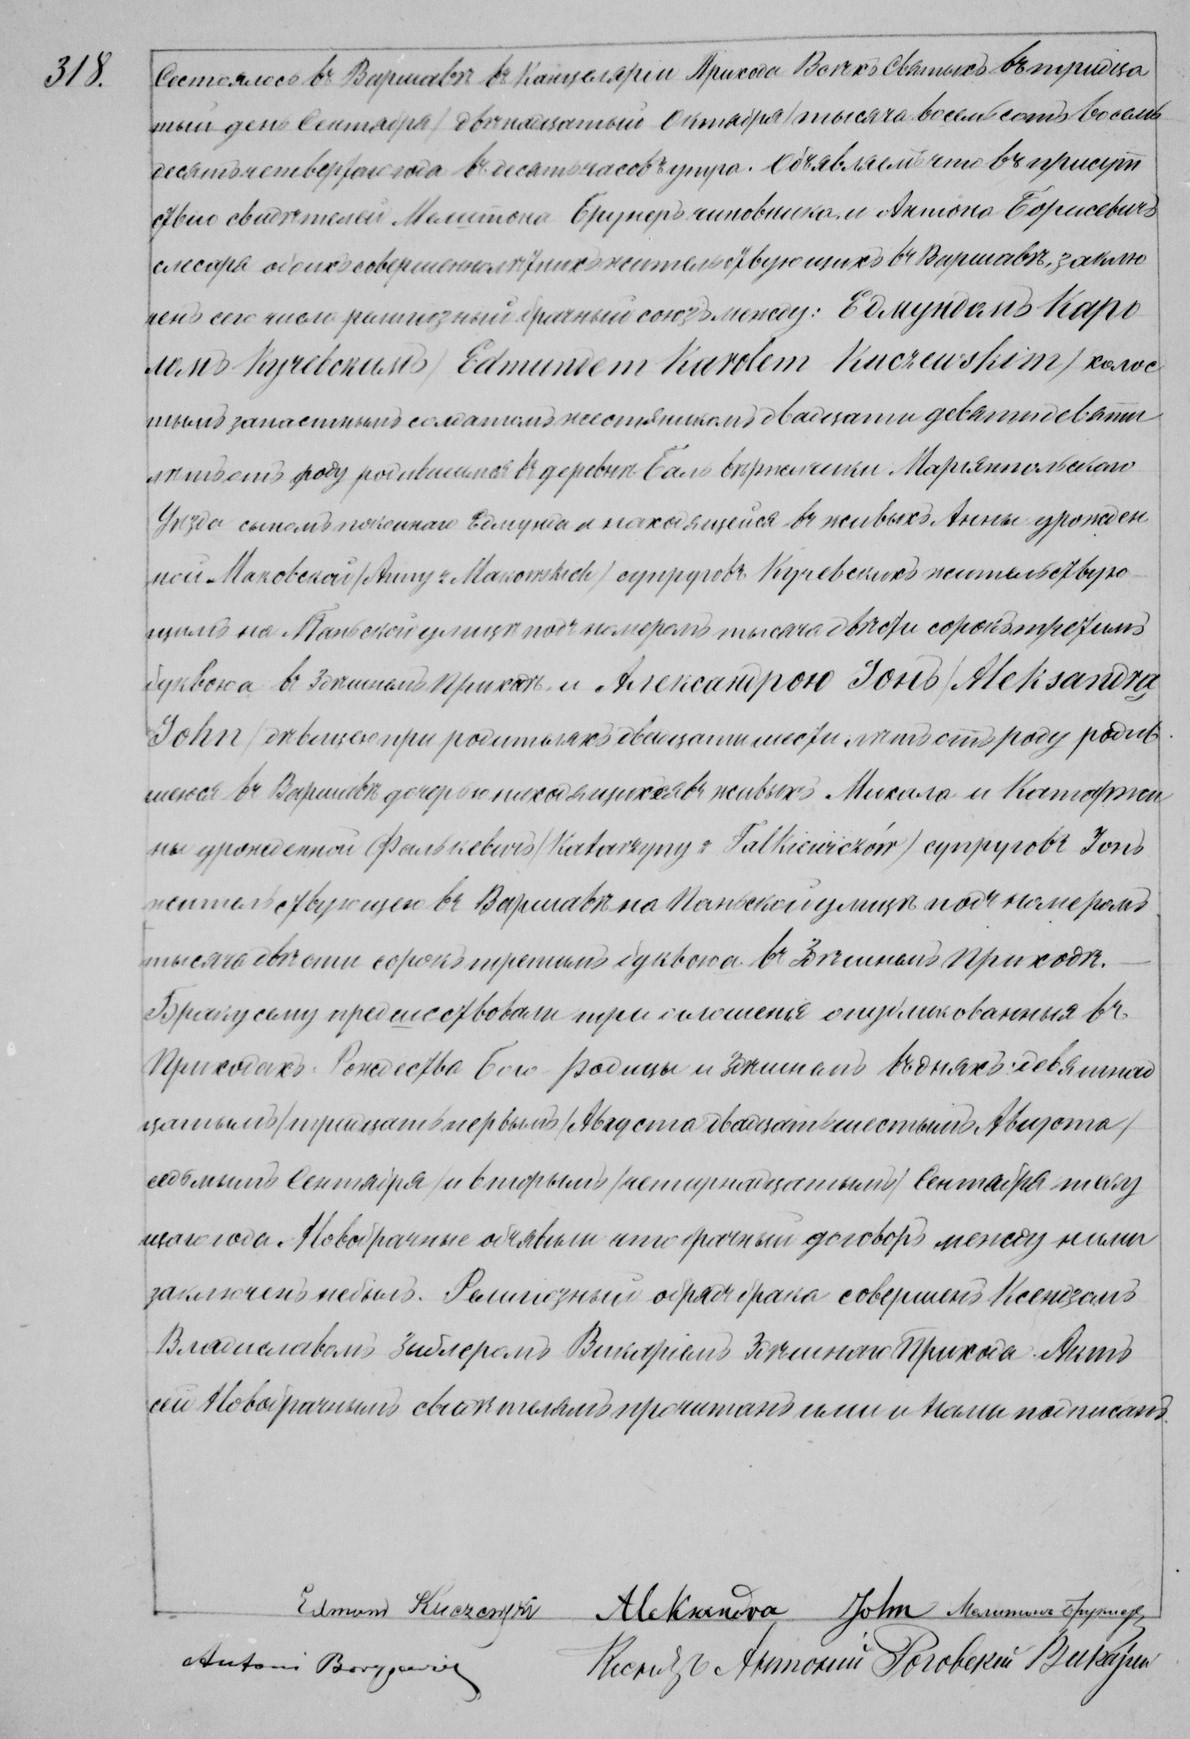 318.
Состоялось въ Варшавѣ въ Канцеляріи Прихода Всѣхъ Святыхъ въ тридца
тый день Сентября / двѣнадцатый Октября / тысяча восемьсотъ восемь
десятъ четвертаго года въ десять часовъ утра. Объявляемъ что въ присут
ствіи свидѣтелей Мелитона Брунеръ чиновника и Антона Борисевичъ
слесаря обоихъ совершеннолѣтнихъ жительствующихъ въ Варшавѣ, заклю
ченъ сего числа религіозный брачный союзъ между: Едмундомъ Каро
ломъ Кучевскимъ / Edmundem Karolem Kuczewskim / холос
тымъ запастнымъ солдатомъ жестяникомъ двадцати девяти
лѣтъ отъ роду родившимся въ деревнѣ Маріямпольскаго
Уѣзда сыномъ покойнаго Едмунда и находящейся въ живыхъ Анны урожден
ной Маковской / Anny z Makowskich / супруговъ Кучевскихъ жительствую
щимъ на Паньской улицѣ подъ номеромъ тысяча двѣсти сорокъ третьимъ
буквою а въ Здѣшнемъ Приходѣ и Александрою Іонъ / Aleksandrą
John / дѣвицею при родителяхъ двадцати шести лѣтъ отъ роду родив
шеюся въ Варшавѣ дочерью находящихся въ живыхъ Михала и Катаржи
ны урожденной Фалькевичъ / Katarzyny z Falkiewiczów / супруговъ Іонъ
жительствующею въ Варшавѣ на Паньской улицѣ подъ номеромъ
тысяча двѣсти сорокъ третимъ буквою а въ Здѣшнемъ Приходѣ. —
Браку сему предшествовали три оглошенія опубликованныя въ
Приходахъ Рождества Бого Родицы и Здѣшнемъ въ дняхъ: девятнад
цатымъ / тридцать первымъ / Августа двадцать шестымъ Августа /
седьмымъ Сентября / и вторымъ / четырнадцатымъ / Сентября теку
щаго года. Новобрачные объявили что брачный договоръ между ними
заключенъ небылъ. Религіозный обрядъ брака совершенъ Ксендзомъ
Владиславомъ Викаріемъ Здѣшнаго Прихода. Актъ
сей Новобрачнымъ свидѣтелямъ прочитанъ ими и Нами подписанъ.
Edmund Kuczewski Aleksandra John Мелитонъ Брунеръ
Antoni Borysewicz Ксендзъ Антоній Роговскій Викарій